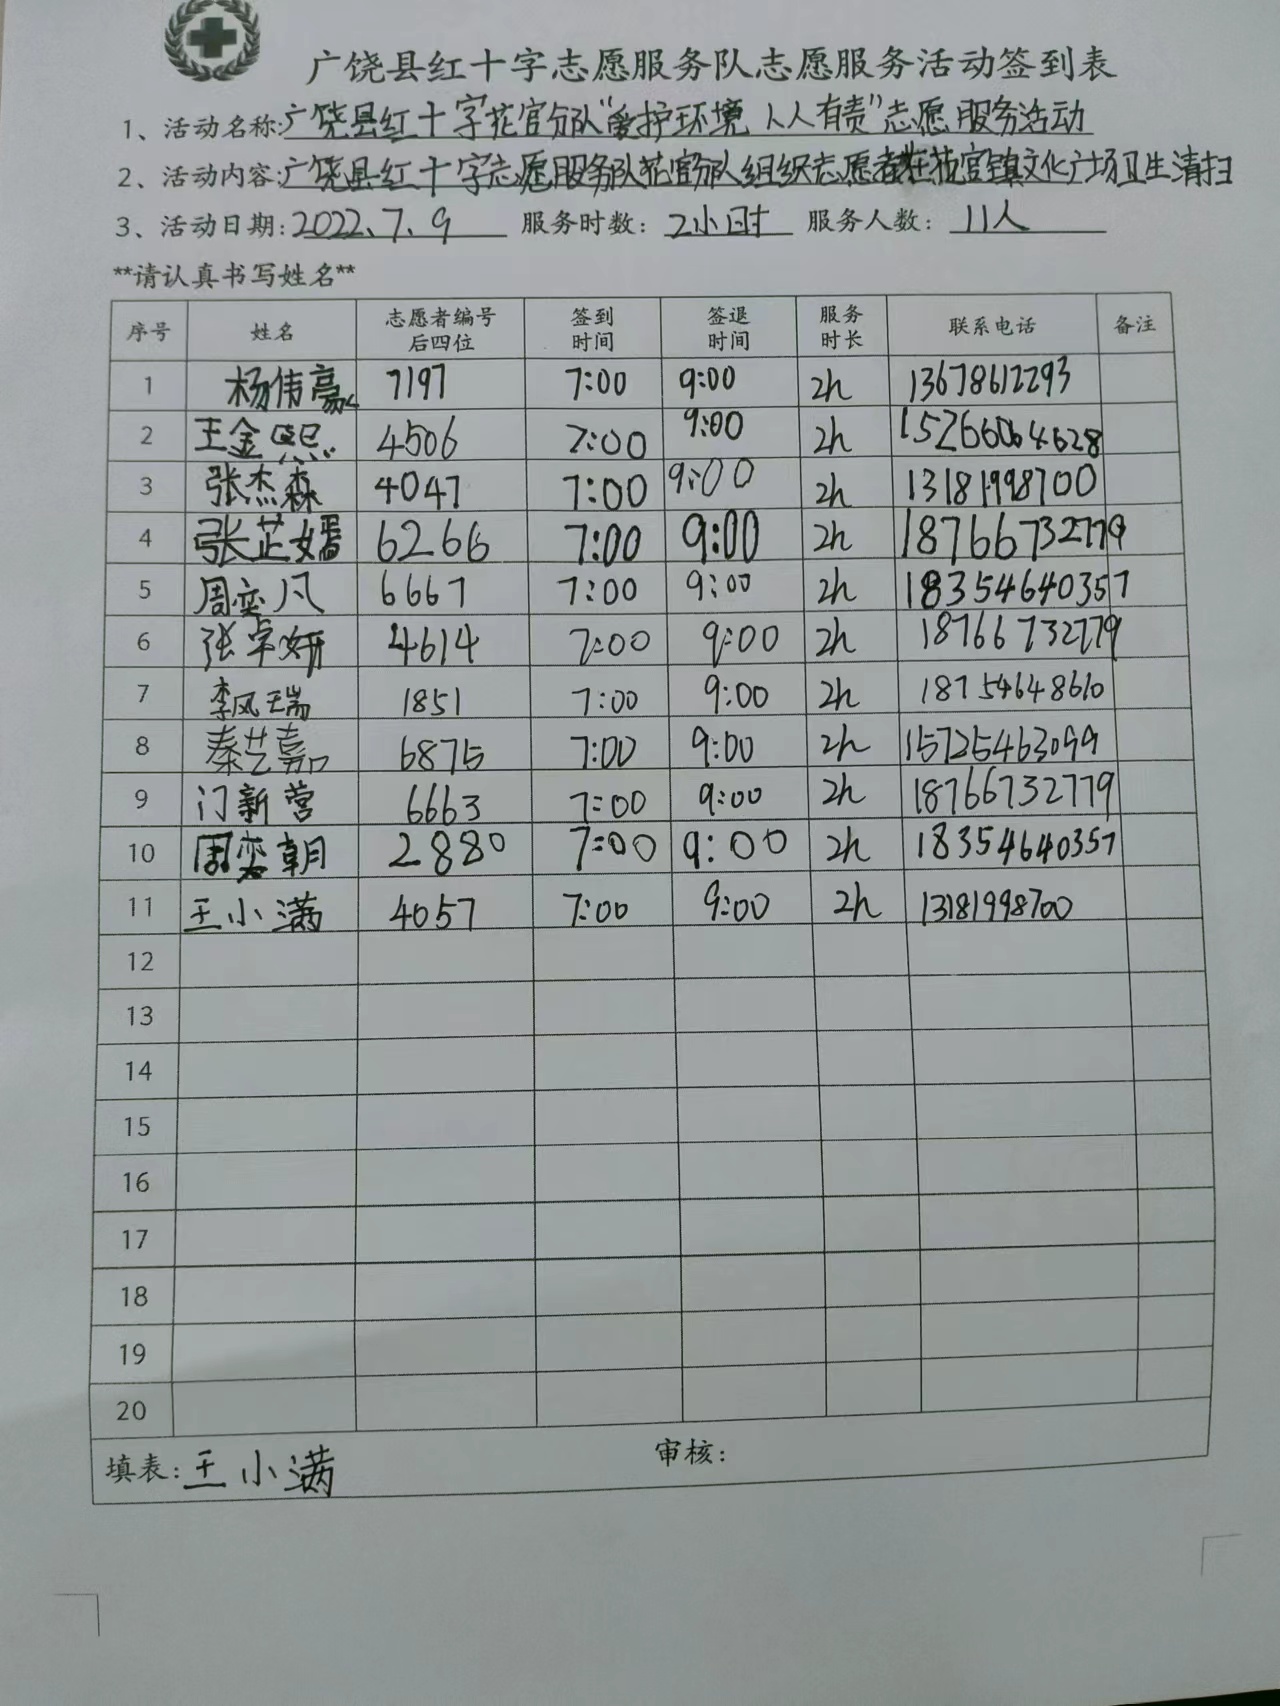 广饶县红十字志愿服务队志愿服务活动签到表
1、活动名称:广饶县红十字花官分队“爱护环境 人人有责”志愿服务活动
2、活动内容:广饶县红十字志愿服务队花官分队组织志愿者在花官镇文化广场卫生清扫
3、活动日期:2022、7、9 服务时数:2小时 服务人数:11人
**请认真书写姓名**
序号 姓名 志愿者编号后四位 签到时间 签退时间 服务时长 联系电话 备注
1 杨伟豪 7197 7:00 9:00 2h 13678612293
2 王金熙 4506 7:00 9:00 2h 15266064628
3 张杰森 4047 7:00 9:00 2h 13181998700
4 张芷嫣 6266 7:00 9:00 2h 18766732779
5 周奕凡 6667 7:00 9:00 2h 18354640357
6 张卓妍 4614 7:00 9:00 2h 18766732779
7 李风瑞 1851 7:00 9:00 2h 18754648610
8 秦艺嘉 6875 7:00 9:00 2h 15725463099
9 门新营 6663 7:00 9:00 2h 18766732779
10 周奕朝 2880 7:00 9:00 2h 18354640357
11 王小满 4057 7:00 9:00 2h 13181998700
12
13
14
15
16
17
18
19
20
填表:王小满 审核: